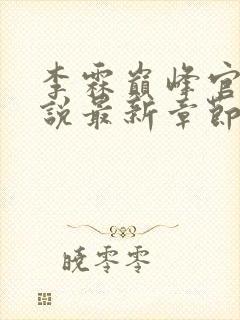 李霖巅峰官
说最新章节
晓零零